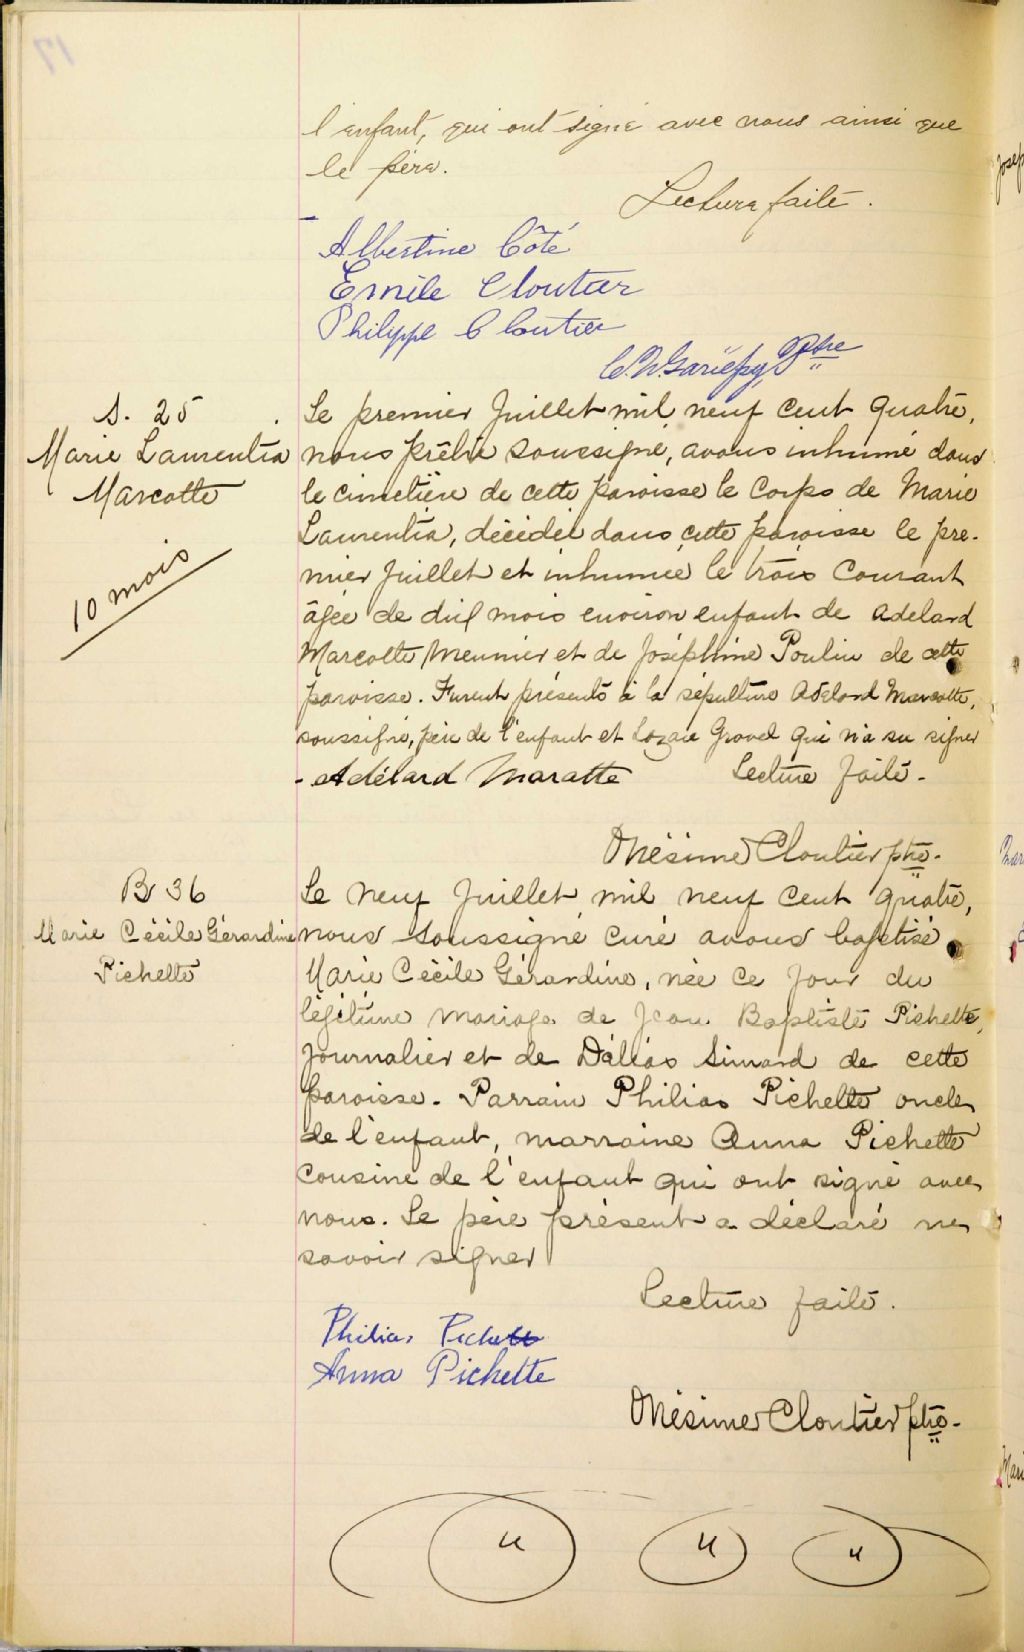 l'enfant, qui ont signé avec nous ainsi que
le père.
Lecture faite.
Albertine Côté
Emile Cloutier
Philippe Cloutier
C. N. Gariépy, Ptre
S. 25
Marie Laurentia
Marcotte
10 mois
Le premier Juillet mil neuf cent quatre,
nous prêtre soussigné, avons inhumé dans
le cimetière de cette paroisse le Corps de Marie
Laurentia, décédée dans cette paroisse le pre-
mier Juillet et inhumée le trois Courant
âgée de dix mois environ enfant de Adelard
Marcotte Meunier et de Joséphine Poulin de cette
paroisse. Furent présents à la sépulture Adelard Marcotte,
soussigné, père de l'enfant et Lazare Gravel qui n'a su signer
- Adélard Maratte Lecture faite.
Onésime Cloutier ptre.
B 36
Marie Cécile Gérardine
Pichette
Le neuf Juillet mil neuf cent quatre,
nous soussigné curé avons baptisé
Marie Cécile Gérardine, née ce jour du
légitime mariage de Jean Baptiste Pichette,
journalier et de Délias Simard de cette
paroisse. Parrain Philias Pichette oncle
de l'enfant, marraine Anna Pichette
cousine de l'enfant qui ont signé avec
nous. Le père présent a déclaré ne
savoir signer
Lecture faite.
Philias Pichette
Anna Pichette
Onésime Cloutier ptre.